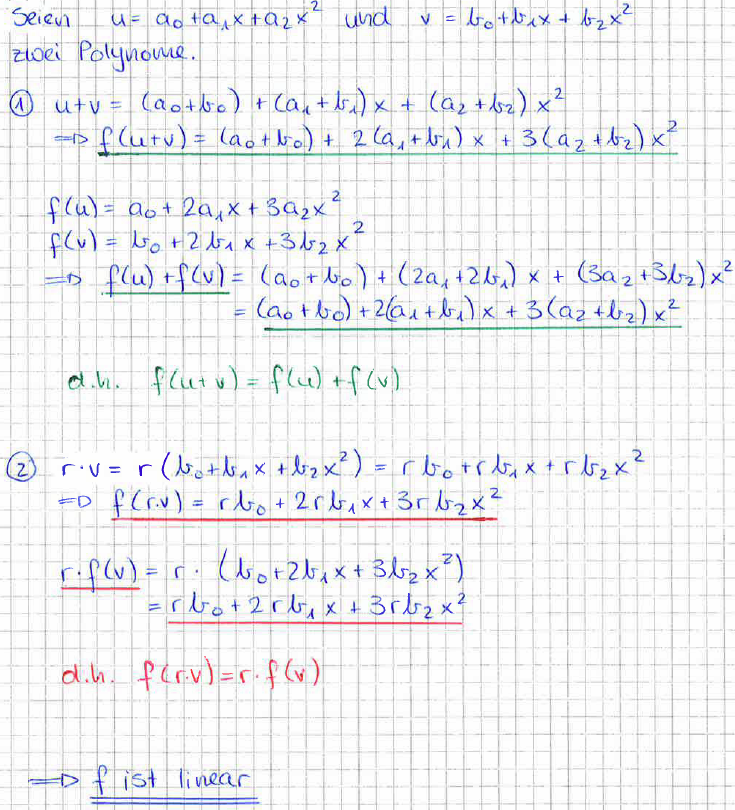 Seien u = a₀ + a₁x + a₂x² und v = b₀ + b₁x + b₂x²
zwei Polynome.
① u+v = (a₀+b₀) + (a₁+b₁)x + (a₂+b₂)x²
⇒ f(u+v) = (a₀+b₀) + 2(a₁+b₁)x + 3(a₂+b₂)x²
f(u) = a₀ + 2a₁x + 3a₂x²
f(v) = b₀ + 2b₁x + 3b₂x²
⇒ f(u) + f(v) = (a₀+b₀) + (2a₁+2b₁)x + (3a₂+3b₂)x²
= (a₀+b₀) + 2(a₁+b₁)x + 3(a₂+b₂)x²
d.h. f(u+v) = f(u) + f(v)
② r·v = r(b₀+b₁x+b₂x²) = rb₀ + rb₁x + rb₂x²
⇒ f(r·v) = rb₀ + 2rb₁x + 3rb₂x²
r·f(v) = r·(b₀+2b₁x+3b₂x²)
= rb₀ + 2rb₁x + 3rb₂x²
d.h. f(r·v) = r·f(v)
⇒ f ist linear